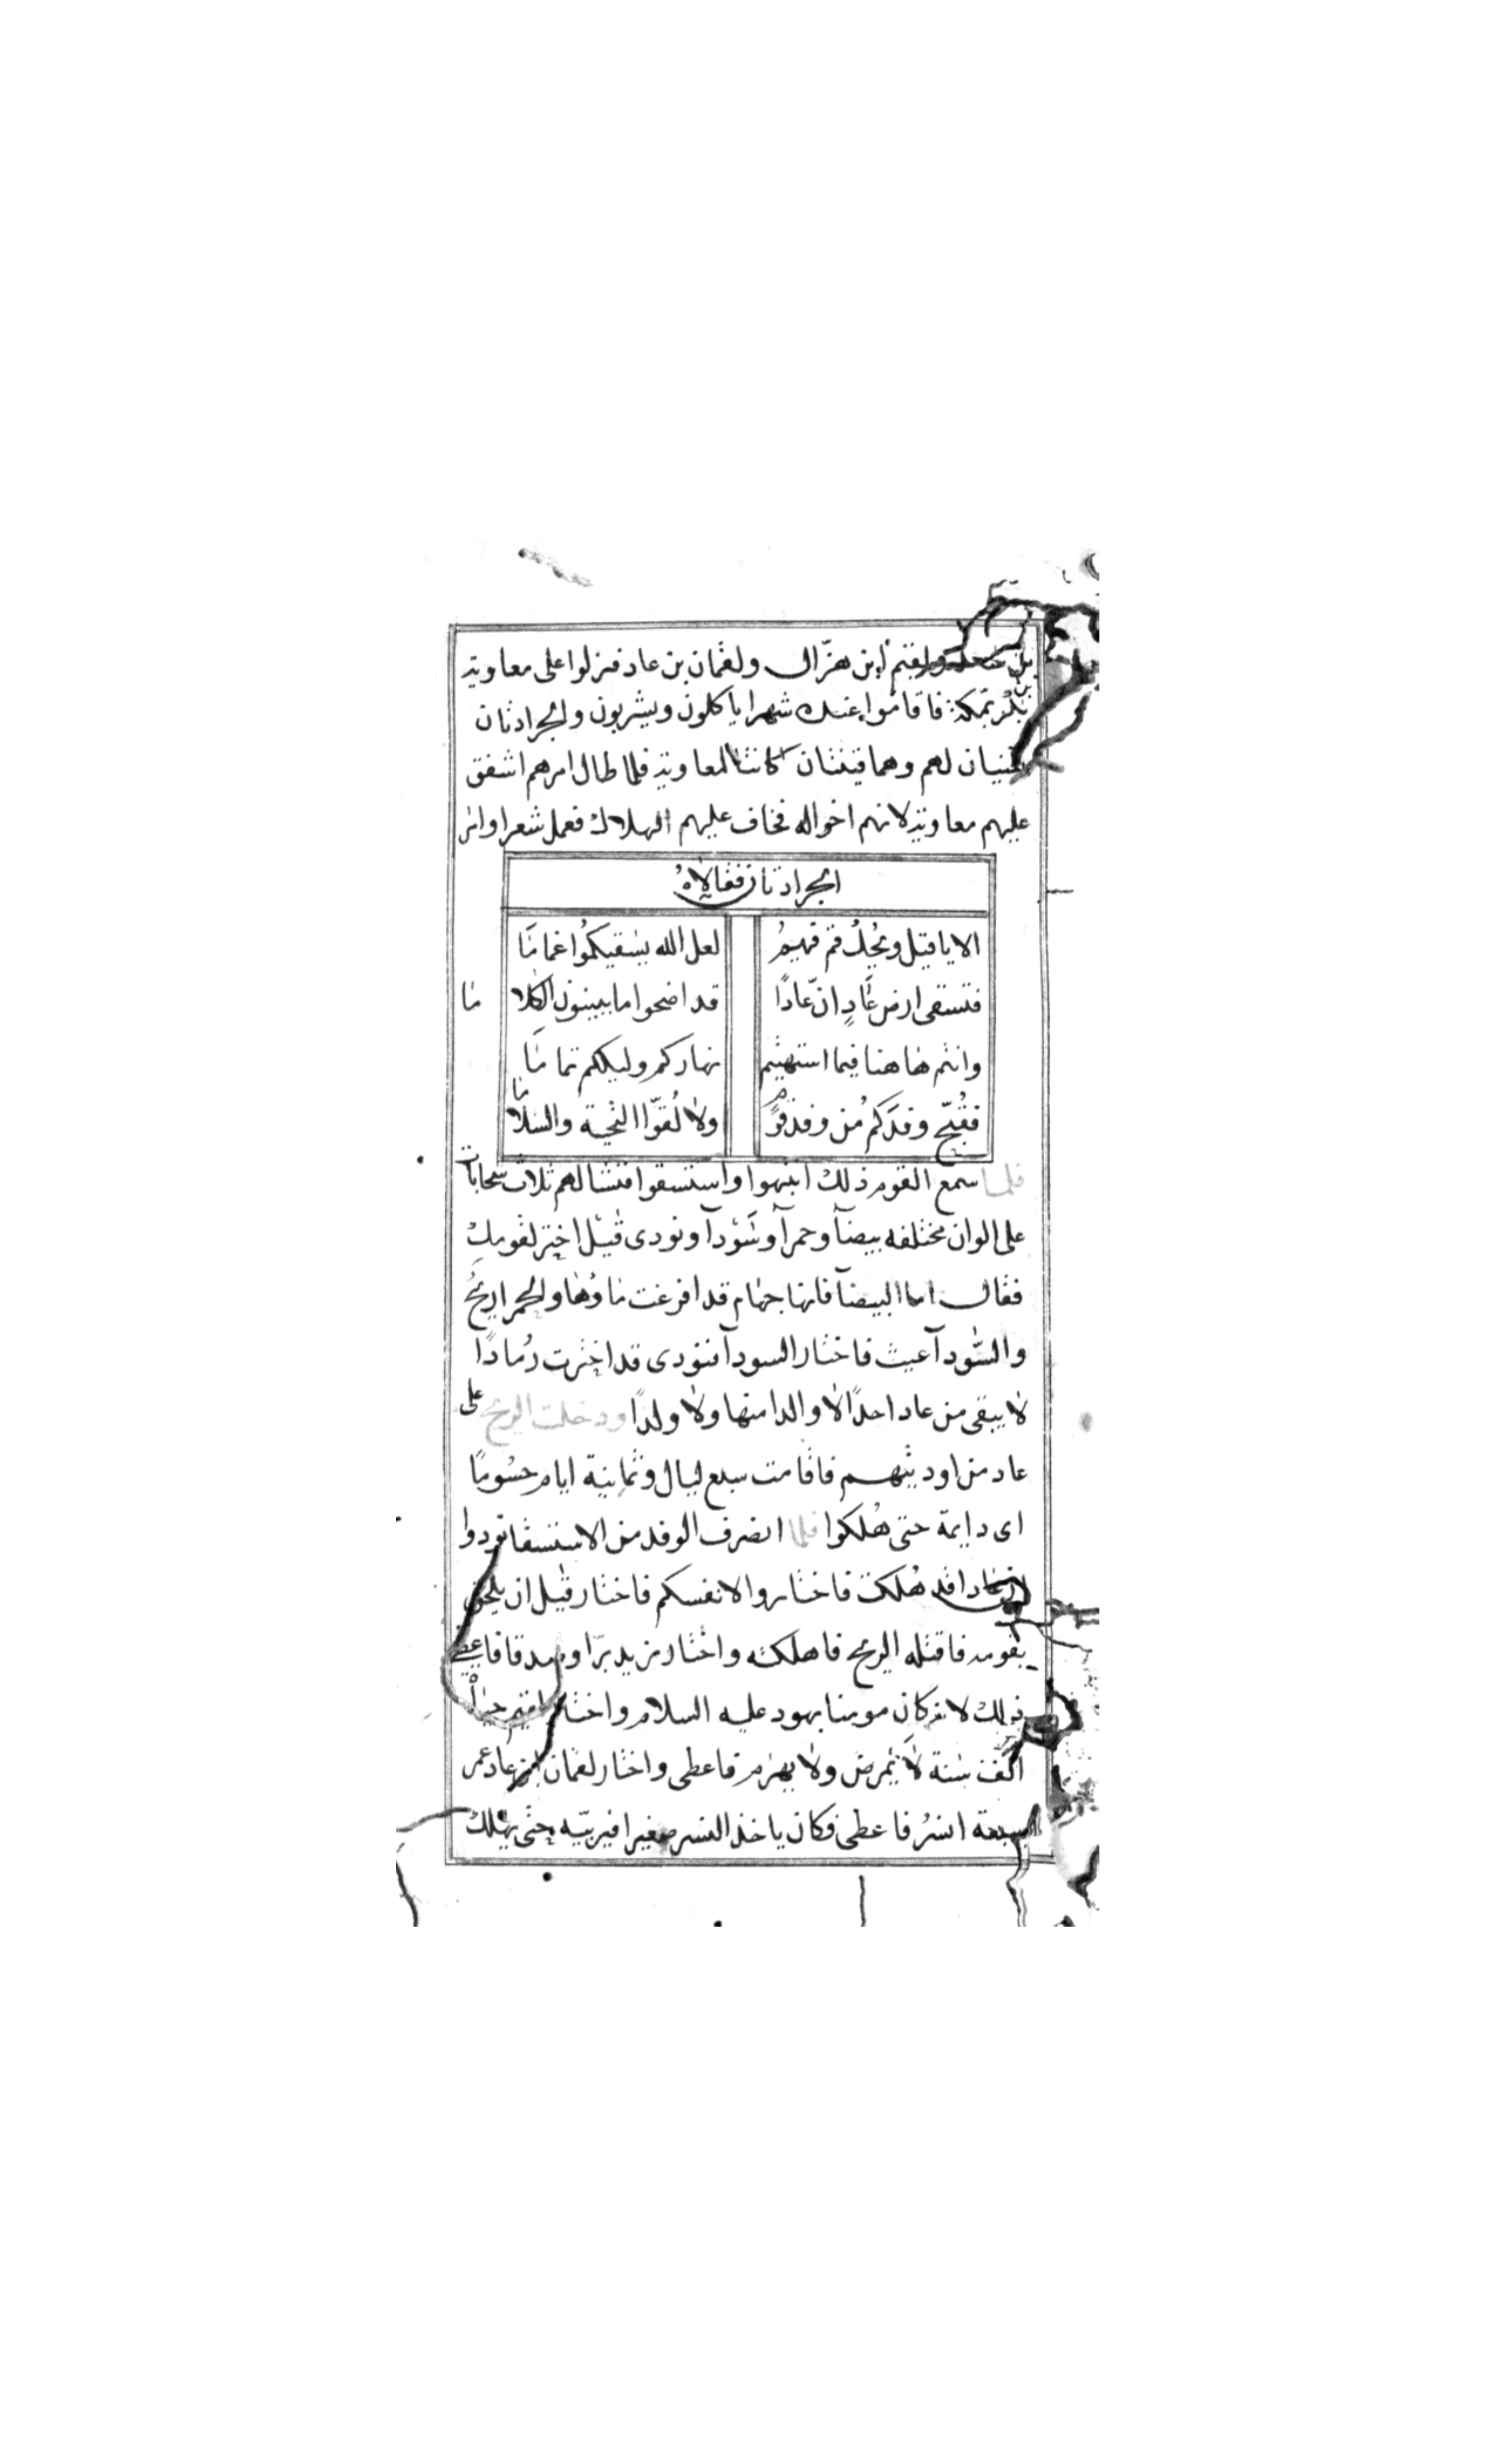 بن ولقيم ابن هزّال ولقمان بن عاد فنزلوا على معاوية
بن بكر بمكة فاقاموا عنده شهرا ياكلون ويشربون والجرادتان
تغنيان لهم وهما قينتان كانتا لمعاوية فلما طال امرهم اشفق
عليهم معاوية لانهم اخواله فخاف عليهم الهلاك فعمل شعرا وامر
الجرادتان فقالاهُ
الا يا قيل ويحكُ قم فهينمُ لعل الله يسقيكمُوا غماما
فتسقى ارض عادٍ انّ عادًا قد اضحوا ما يبينون الكلا ما
وانتم هاهنا فيما اشتهيتم نهاركم وليلكم تماما
فقُبّح وفدَكم من وفد قومٍ ولا لُقوّا التحية والسلاما
فلما سمع القوم ذلك انتبهوا واستسقوا فنشا لهم ثلاث سحابات
على الوان مختلفه بيضآ وحمرآ وسَوْدآ ونودى قيل اختر لقومك
فقال اما البيضآ فانها جهام قد افرغت ماؤها والحمرا ريحُ
والسّودآ غيث فاختار السودآ فنودى قد اخترت رُمادًا
لا يبقى من عاد احدًا الا والدا منها ولا ولدًا ودخلت الريح على
عاد من اوديتهم فاقامت سبع ليال وثمانية ايام حسُومًا
اى دايمة حتى هُلكوا فلما انصرف الوفد من الاستسقا نودوا
ان عادا قد هُلكت فاختاروا لانفسكم فاختار قيل ان يلحق
بقومه فاقتله الريح فاهلكه واختار مزيد برّا وصدقا فاعطى
ذلك لانه كان مومنا بهود عليه السلام واختار لقيم حياةْ
الف سنة لا يَمرض ولا يهرم فاعطى واختار لقمان ابن عاد عمر
سبعة انسُر فاعطى فكان ياخذ النسر صغيرا فيربّيه حتى يهلك